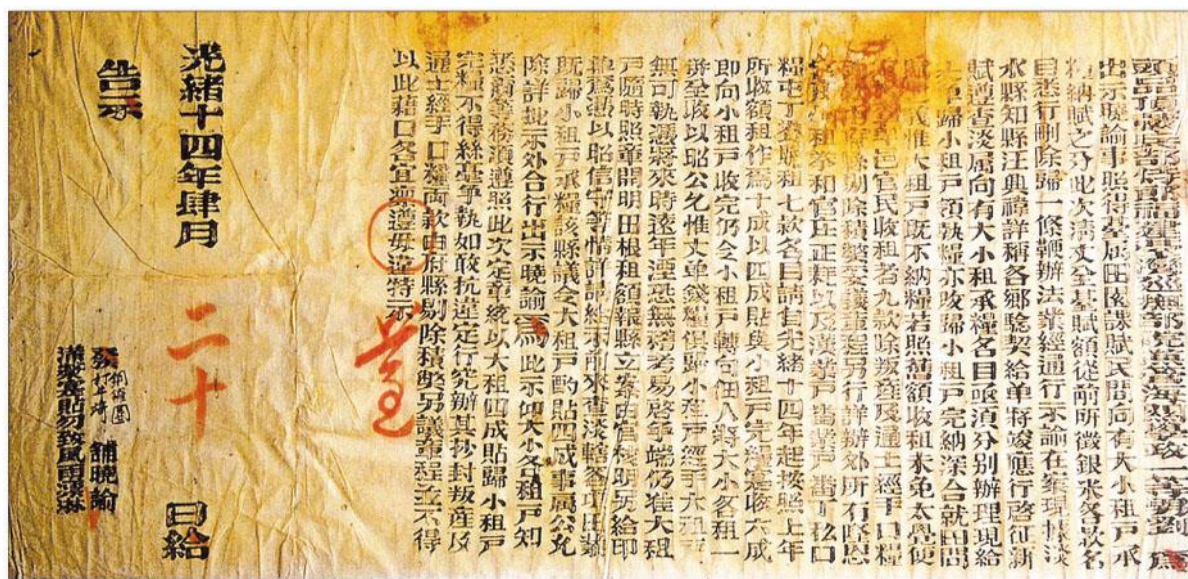 頭品頂戴兵部尚書福建臺灣巡撫部院 學政一等男劉 爲
出示曉諭事照得臺屬田園課賦民間向有大小租戶承
糧納賦之分此次清丈全臺賦額從前所徵銀米各款名
目悉行刪除歸一條鞭辦法業經通行示諭在案現據淡
水縣知縣汪興禕詳稱各鄉驗契給單將竣應行啓征新
賦遵查淡屬向有大小租承糧名目亟須分別辦理現給
丈單歸小租戶領執糧亦改歸小租戶完納深合就田問
賦 惟大租戶既不納糧若照舊額收租未免太覺便
邑官民收租者九款除叛產及通土經手口糧
剔除積弊妥議章程另行詳辦外所有隆恩
租 和官庄正耗以及漢業戶 番業戶 番丁社口
糧屯丁番 租七款名目請自光緒十四年起按照上年
所收額租作爲十成以四成貼與小租戶完糧還收六成
即向小租戶收完仍令小租戶轉句佃人將大小各租一
併全收以昭公允惟丈單錢糧俱歸小租戶經手大租戶
無可執憑將來時遠年湮恐無稽考易啓爭端仍准大租
戶隨時照章開明田根租額報縣立案由官核明另給印
單爲憑以昭信守等情詳請核示前來查淡轄各項田業
既歸小租戶承糧該縣議令大租戶酌貼四成事屬公允
除詳批示外合行出示曉諭爲此示仰大小各租戶知
悉爾等務須遵照此次定章統以大租四成貼歸小租戶
完糧不得絲毫爭執如敢抗違定行究辦其抄封叛產及
通土經手口糧兩款由府縣剔除積弊另議章程並不得
以此藉口各宜凜遵毋違特示
光緒十四年肆月 二十 日給
告示
發 舖曉諭
滿漿實貼勿致風雨損淋